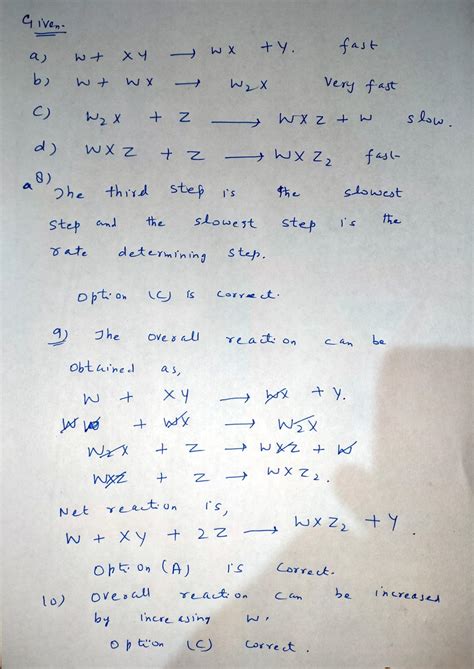 Given.
a) W + XY → WX + Y. fast
b) W + WX → W2X Very fast
c) W2X + Z → WXZ + W slow.
d) WXZ + Z → WXZ2 fast
a 8) The third step is the slowest
step and the slowest step is the
rate determining step.
option (C) is correct.
9) The overall reaction can be
obtained as,
W + XY → WX + Y.
W + WX → W2X
W2X + Z → WXZ + W
WXZ + Z → WXZ2.
Net reaction is,
W + XY + 2Z → WXZ2 + Y.
option (A) is correct.
10) Overall reaction can be increased
by increasing W.
option (C) correct.